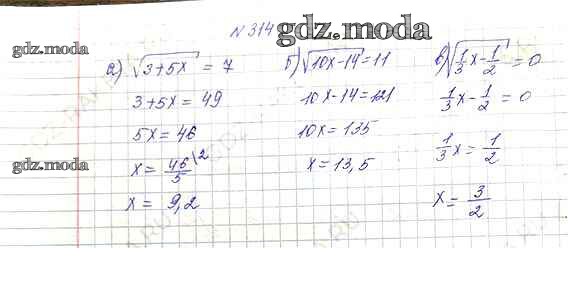 № 314
gdz.moda
gdz.moda
gdz.moda
gdz.moda
а) √(3+5x) = 7
3+5x = 49
5x = 46
x = 46/5 \2
x = 9,2
б) √(10x-14) = 11
10x-14 = 121
10x = 135
x = 13,5
в) √(1/3 x - 1/2) = 0
1/3 x - 1/2 = 0
1/3 x = 1/2
x = 3/2